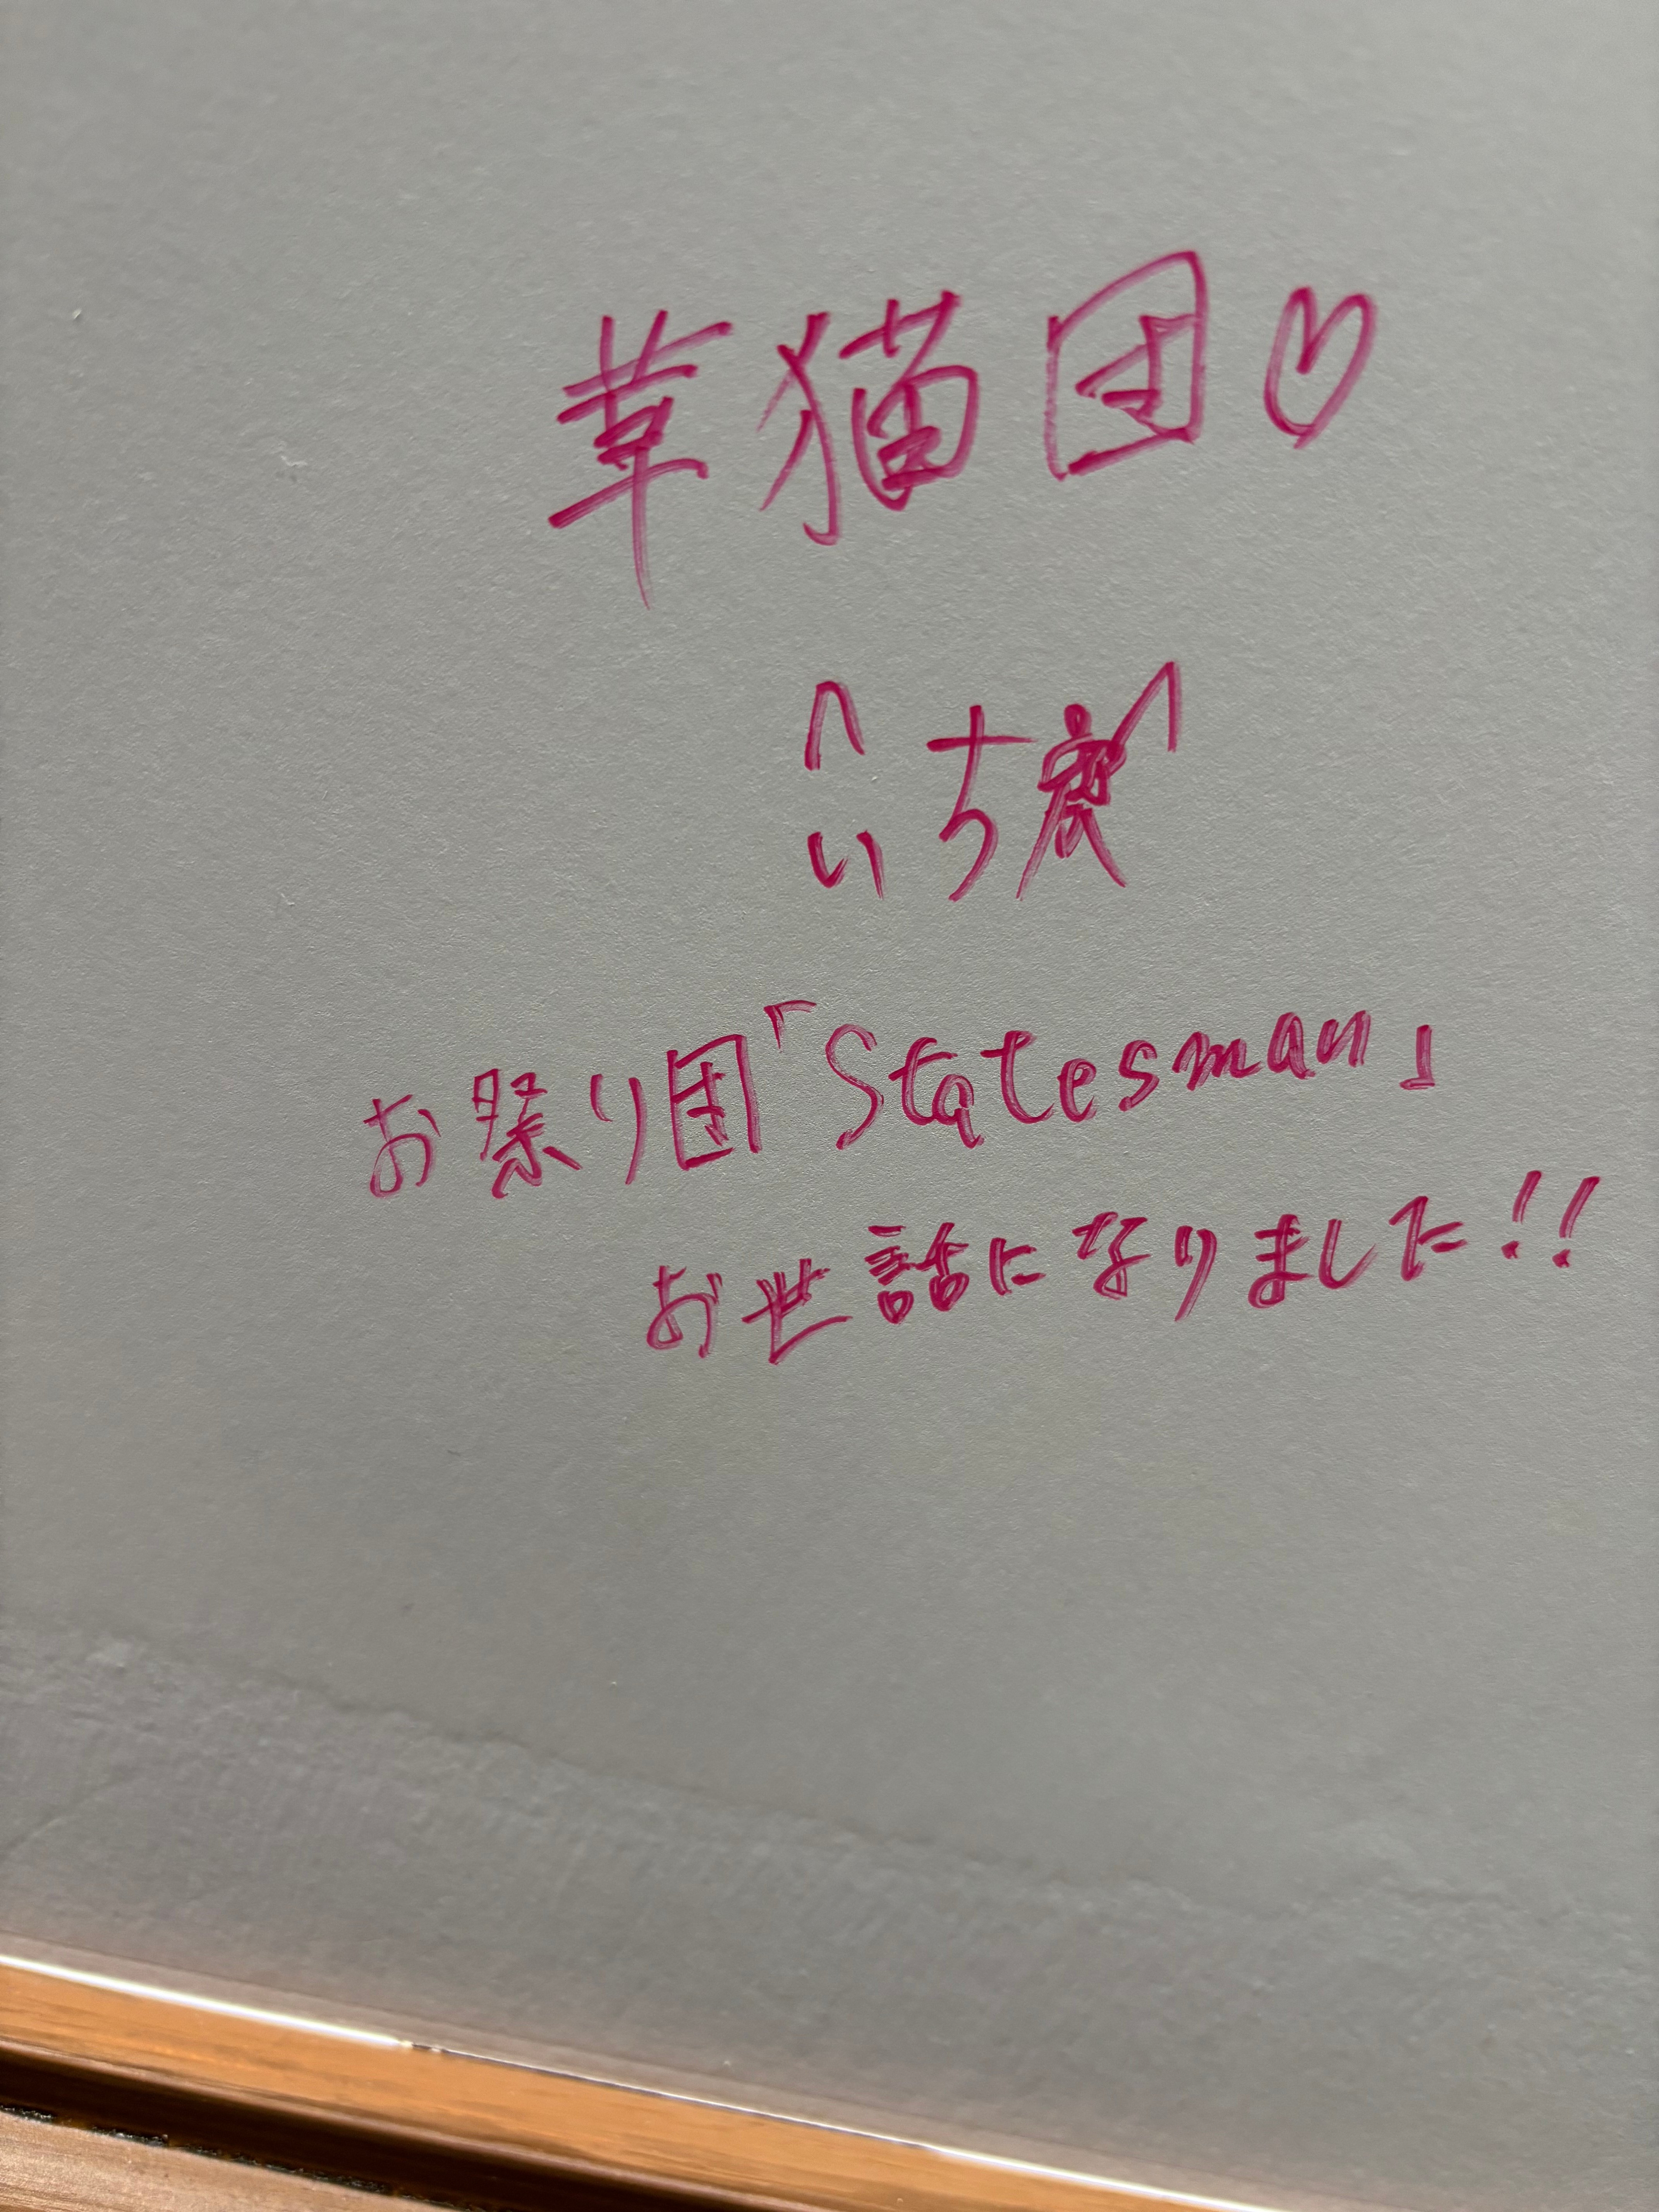 草猫団♡
いち
お祭り団「Statesman」
お世話になりました!!